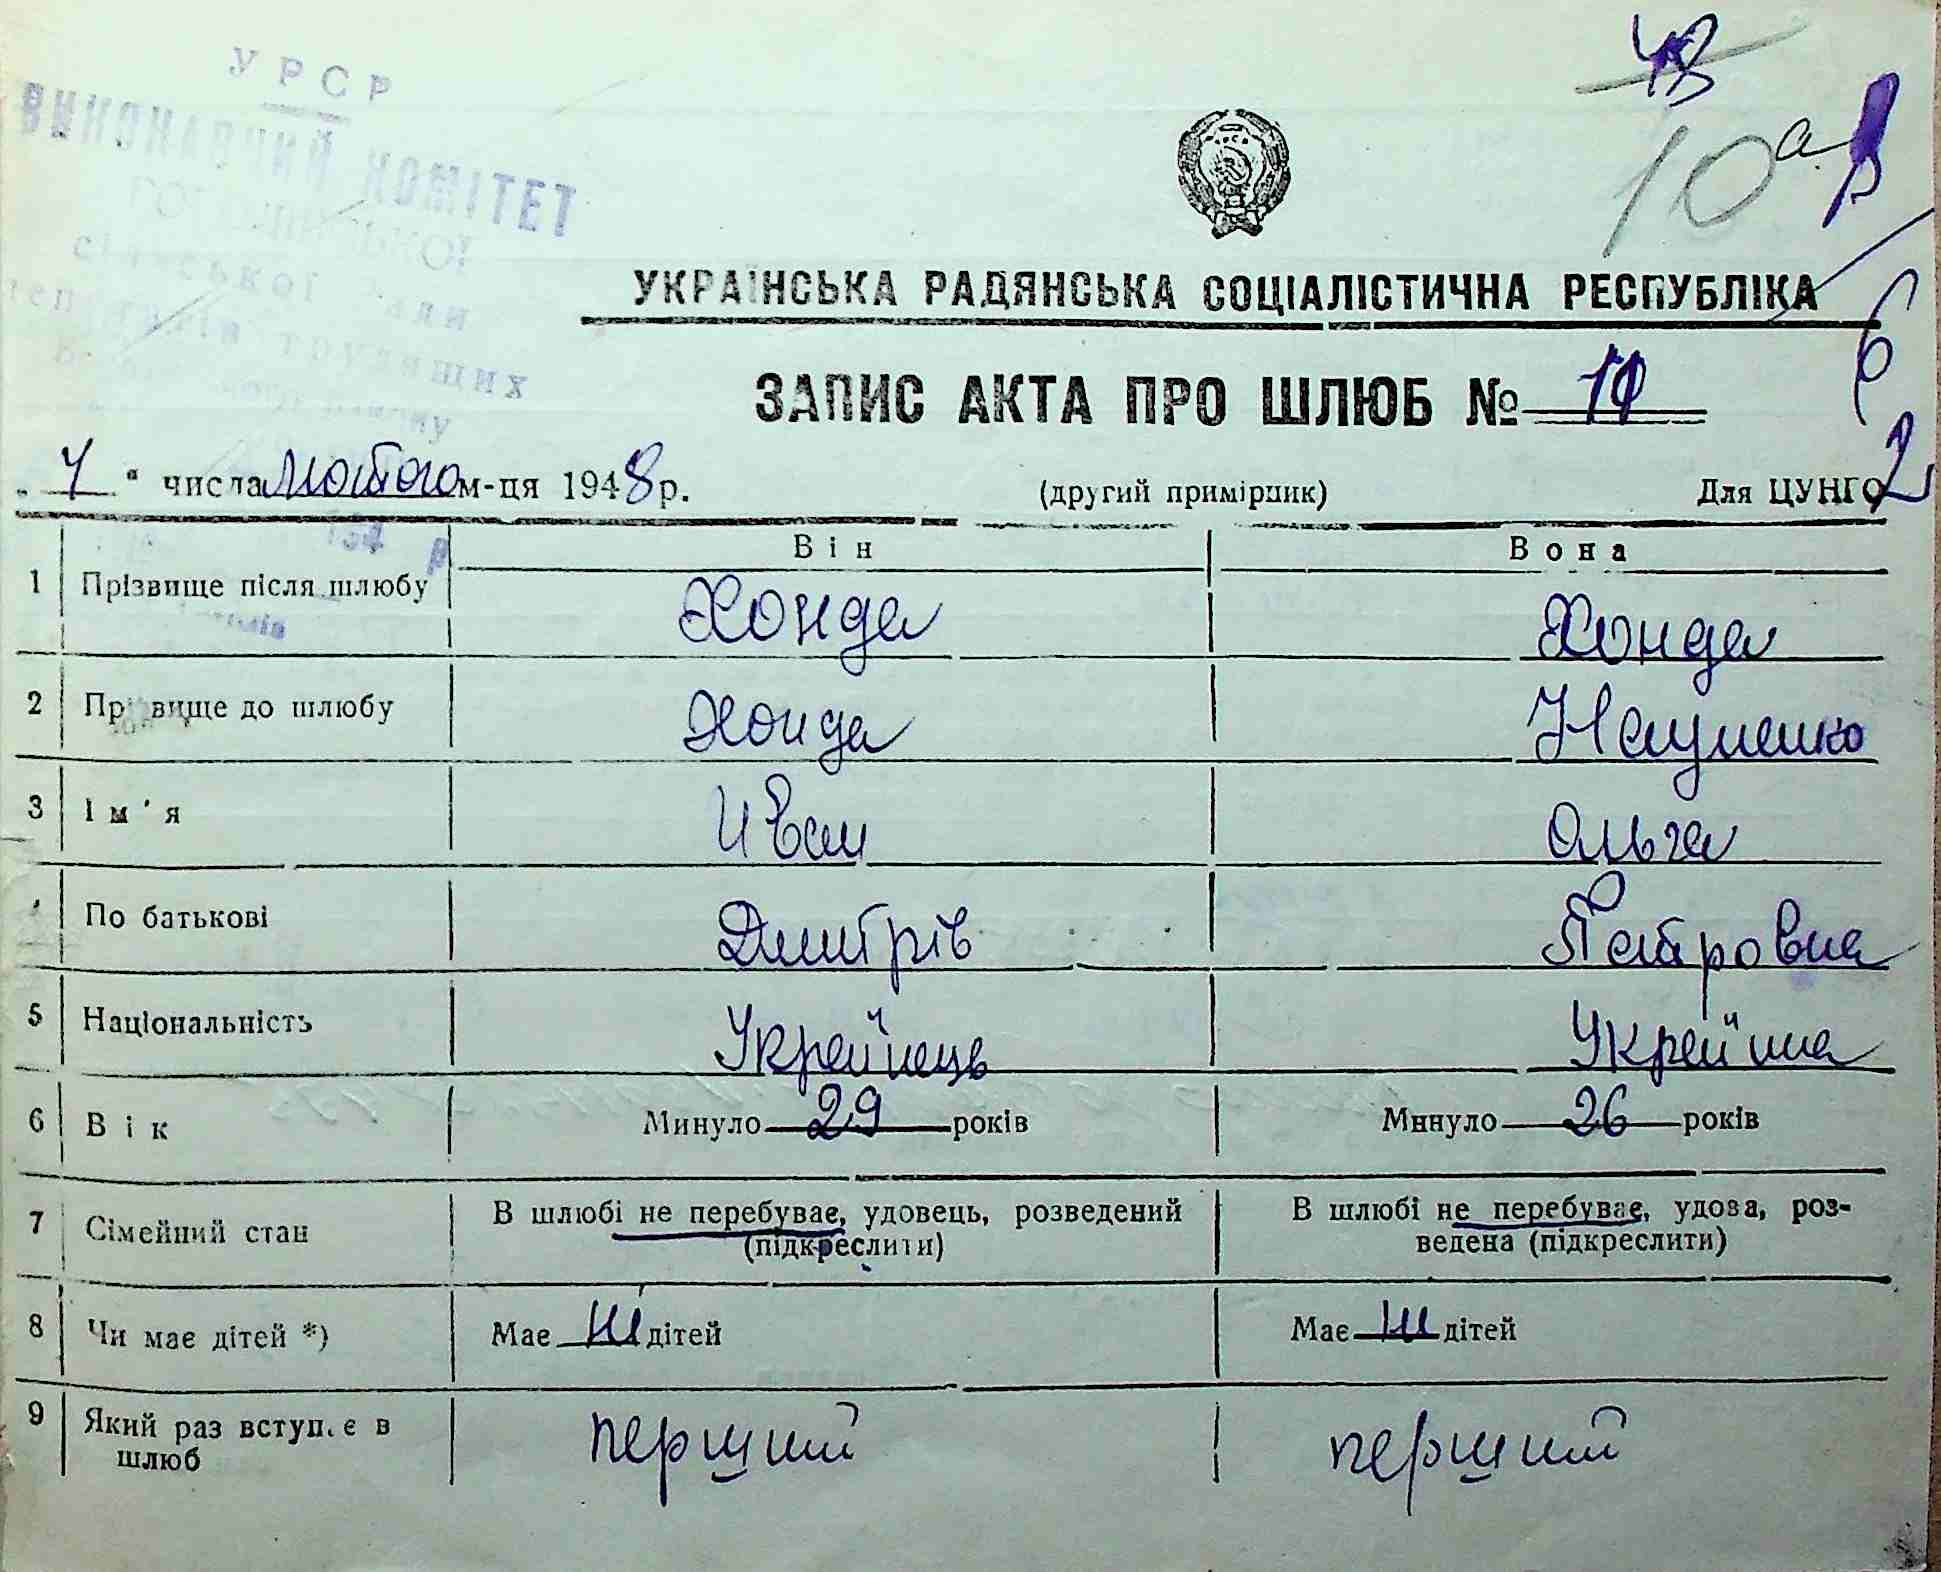 УРСР
ВИКОНАВЧИЙ КОМІТЕТ
сільської Ради
депутатів трудящих
10а
УКРАЇНСЬКА РАДЯНСЬКА СОЦІАЛІСТИЧНА РЕСПУБЛІКА
6
ЗАПИС АКТА ПРО ШЛЮБ №
2
„ 4 “ числа лютого м-ця 1948 р. (другий примірник) Для ЦУНГО
Він Вона
1 Прізвище після шлюбу Хонда Хонда
2 Прізвище до шлюбу Хонда Науменко
3 Ім'я Иван Ольга
По батькові Дмитрів Петровна
5 Національність Украйнець Украйнка
6 Вік Минуло 29 років Минуло 26 років
7 Сімейний стан В шлюбі не перебуває, удовець, розведений В шлюбі не перебуває, удова, роз-
(підкреслити) ведена (підкреслити)
8 Чи має дітей *) Має ні дітей Має ні дітей
9 Який раз вступає в перший перший
шлюб